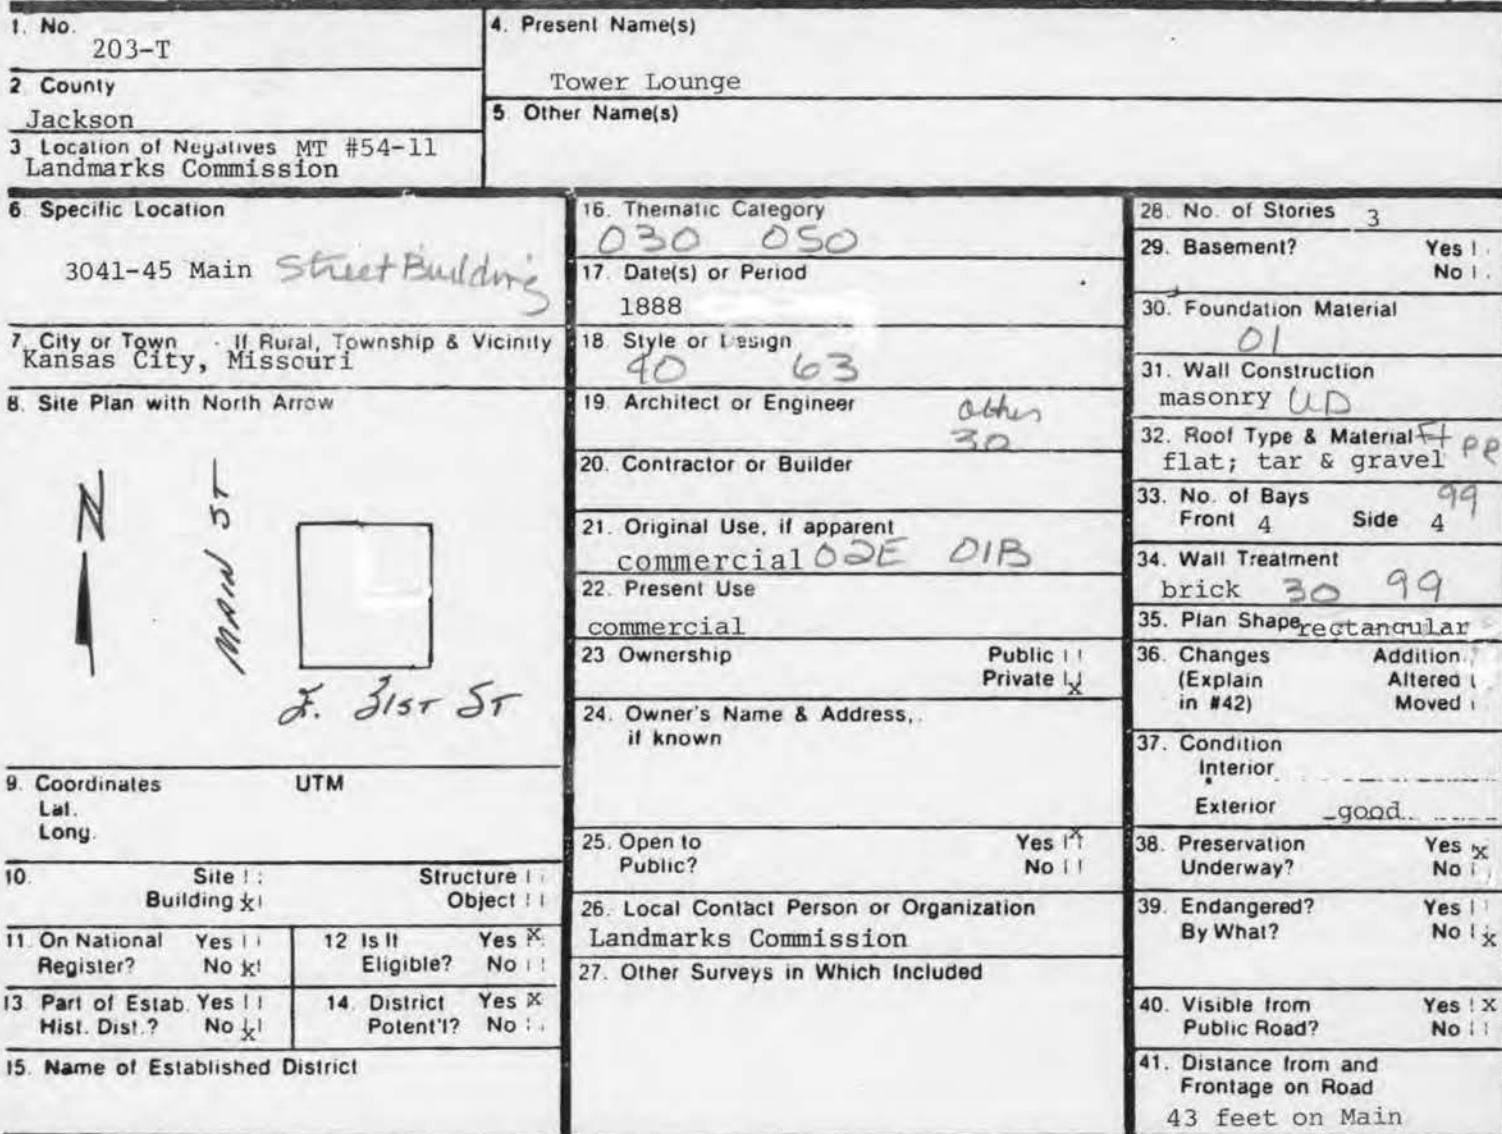 1. No.
203-T
2 County
Jackson
3 Location of Negatives MT #54-11
Landmarks Commission
4. Present Name(s)
Tower Lounge
5 Other Name(s)
6 Specific Location
3041-45 Main Street Building
7 City or Town If Rural, Township & Vicinity
Kansas City, Missouri
8. Site Plan with North Arrow
N
MAIN ST
E. 31ST ST
9. Coordinates UTM
Lat.
Long.
10. Site Structure
Building x Object
11. On National Yes
Register? No x
12 Is It Yes x
Eligible? No
13 Part of Estab. Yes
Hist. Dist.? No x
14. District Yes x
Potent'l? No
15. Name of Established District
16. Thematic Category
030 050
17. Date(s) or Period
1888
18. Style or Design
40 63
19. Architect or Engineer other
30
20. Contractor or Builder
21. Original Use, if apparent
commercial 02E 01B
22. Present Use
commercial
23 Ownership Public
Private x
24. Owner's Name & Address,
if known
25. Open to Yes x
Public? No
26. Local Contact Person or Organization
Landmarks Commission
27. Other Surveys in Which Included
28. No. of Stories 3
29. Basement? Yes
No
30. Foundation Material
01
31. Wall Construction
masonry UD
32. Roof Type & Material Ft PR
flat; tar & gravel
33. No. of Bays 99
Front 4 Side 4
34. Wall Treatment
brick 30 99
35. Plan Shape rectangular
36. Changes Addition
(Explain Altered
in #42) Moved
37. Condition
Interior
Exterior good
38. Preservation Yes x
Underway? No
39. Endangered? Yes
By What? No x
40. Visible from Yes x
Public Road? No
41. Distance from and
Frontage on Road
43 feet on Main